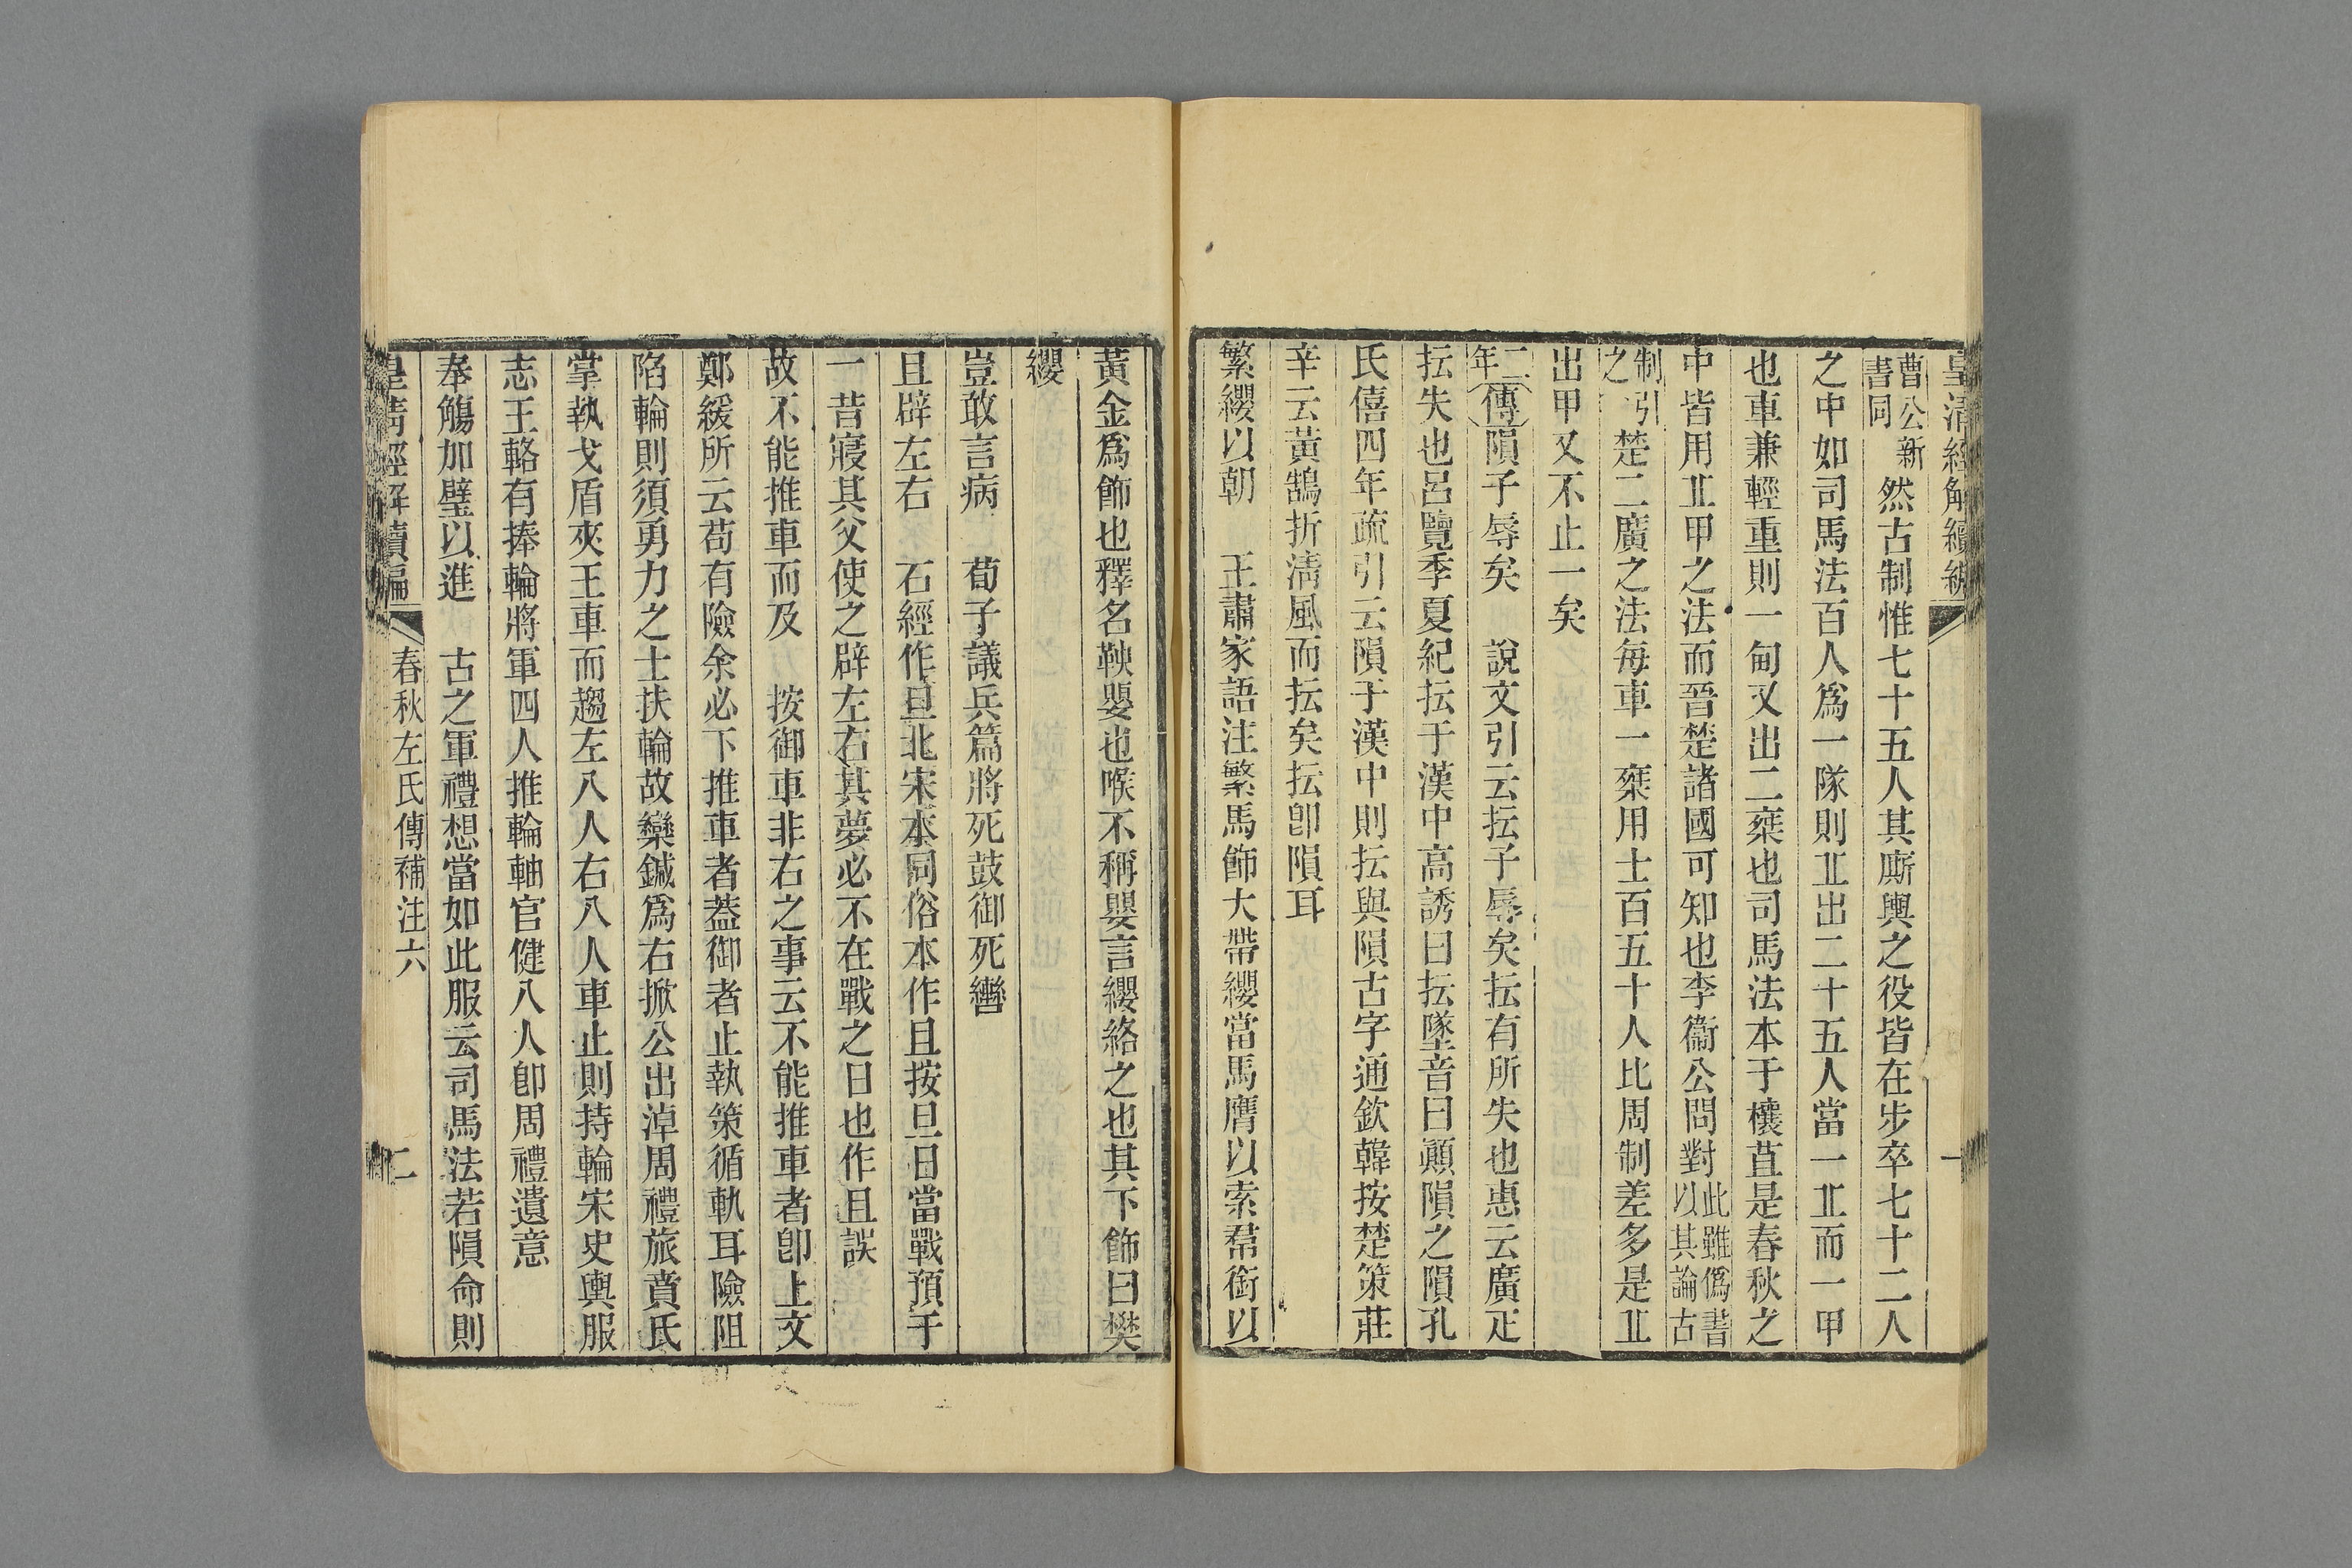 皇清經解續編
一
曹公新書同然古制惟七十五人其廝輿之役皆在步卒七十二人
之中如司馬法百人爲一隊則丠出二十五人當一丠而一甲
也車兼輕重則一甸又出二椉也司馬法本于穰苴是春秋之
中皆用丠甲之法而晉楚諸國可知也李衞公問對此雖僞書以其論古
制引之楚二廣之法每車一椉用士百五十人比周制差多是丠
出甲又不止一矣
二年傳隕子辱矣　說文引云抎子辱矣抎有所失也惠云廣疋
抎失也呂覽季夏紀抎于漢中高誘曰抎墜音曰顚隕之隕孔
氏僖四年疏引云隕于漢中則抎與隕古字通欽韓按楚策莊
辛云黃鵠折淸風而抎矣抎卽隕耳
繁纓以朝　王肅家語注繁馬飾大帶纓當馬膺以索帬銜以
黃金爲飾也釋名鞅嬰也喉不稱嬰言纓絡之也其下飾曰樊
纓
豈敢言病　荀子議兵篇將死鼓御死轡
且辟左右　石經作旦北宋本同俗本作且按旦日當戰預于
一昔寢其父使之辟左右其夢必不在戰之日也作且誤
故不能推車而及　按御車非右之事云不能推車者卽上文
鄭緩所云苟有險余必下推車者葢御者止執策循軌耳險阻
陷輪則須勇力之士扶輪故欒鍼爲右掀公出淖周禮旅賁氏
掌執戈盾夾王車而趨左八人右八人車止則持輪宋史輿服
志王輅有捧輪將軍四人推輪軸官健八人卽周禮遺意
奉觴加璧以進　古之軍禮想當如此服云司馬法若隕命則
皇淸經解續編
春秋左氏傳補注六
二